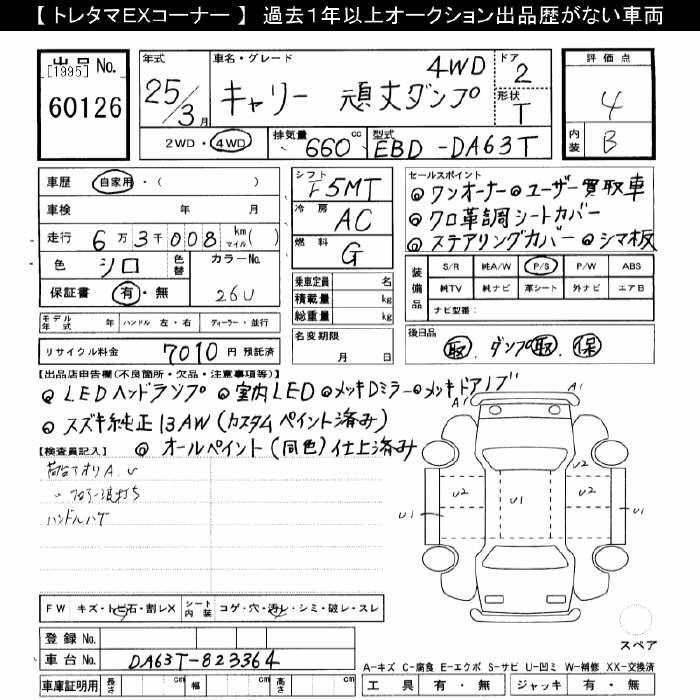 【 トレタマEXコーナー 】 過去1年以上オークション出品歴がない車両
出品No. [1995]
60126
年式 25/3月
車名・グレード 4WD
キャリー 頑丈ダンプ
ドア 2
形状 T
2WD・4WD
排気量 660 cc
型式 EBD-DA63T
評価点 4
内装 B
車歴 自家用・( )
車検 年 月
走行 6万3千008 km マイル ( )
色 シロ 色替
カラーNo. 26U
保証書 有・無
シフト F5MT
冷房 AC
燃料 G
乗車定員 名
積載量 kg
総重量 kg
名変期限 月 日
セールスポイント
◎ワンオーナー ◎ユーザー買取車
◎クロ革調シートカバー
◎ステアリングカバー ◎シマ板
装備品
S/R 純A/W P/S P/W ABS
純TV 純ナビ 革シート 外ナビ エアB
ナビ型番:
モデル年式 年 ハンドル 左・右 ディーラー・並行
リサイクル料金 7010 円 預託済
後日品 取、ダンプ取、保
【出品店申告欄(不良箇所・欠品・注意事項等)】
◎LEDヘッドランプ ◎室内LED ◎メッキDミラー ◎メッキドアノブ
◎スズキ純正13AW(カスタムペイント済み)
◎オールペイント(同色)仕上済み
【検査員記入】
ハンドルハゲ
A1 A1
U1 U2 U1 U2 U1
FW キズ・トビ石・割レX
シート内装 コゲ・穴・汚レ・シミ・破レ・スレ
登録 No.
車台 No. DA63T-823364
車庫証明用 長さ cm 幅 cm 高さ cm
スペア
A-キズ C-腐食 E-エクボ S-サビ U-凹ミ W-補修 XX-交換済
工具 有・無 ジャッキ 有・無